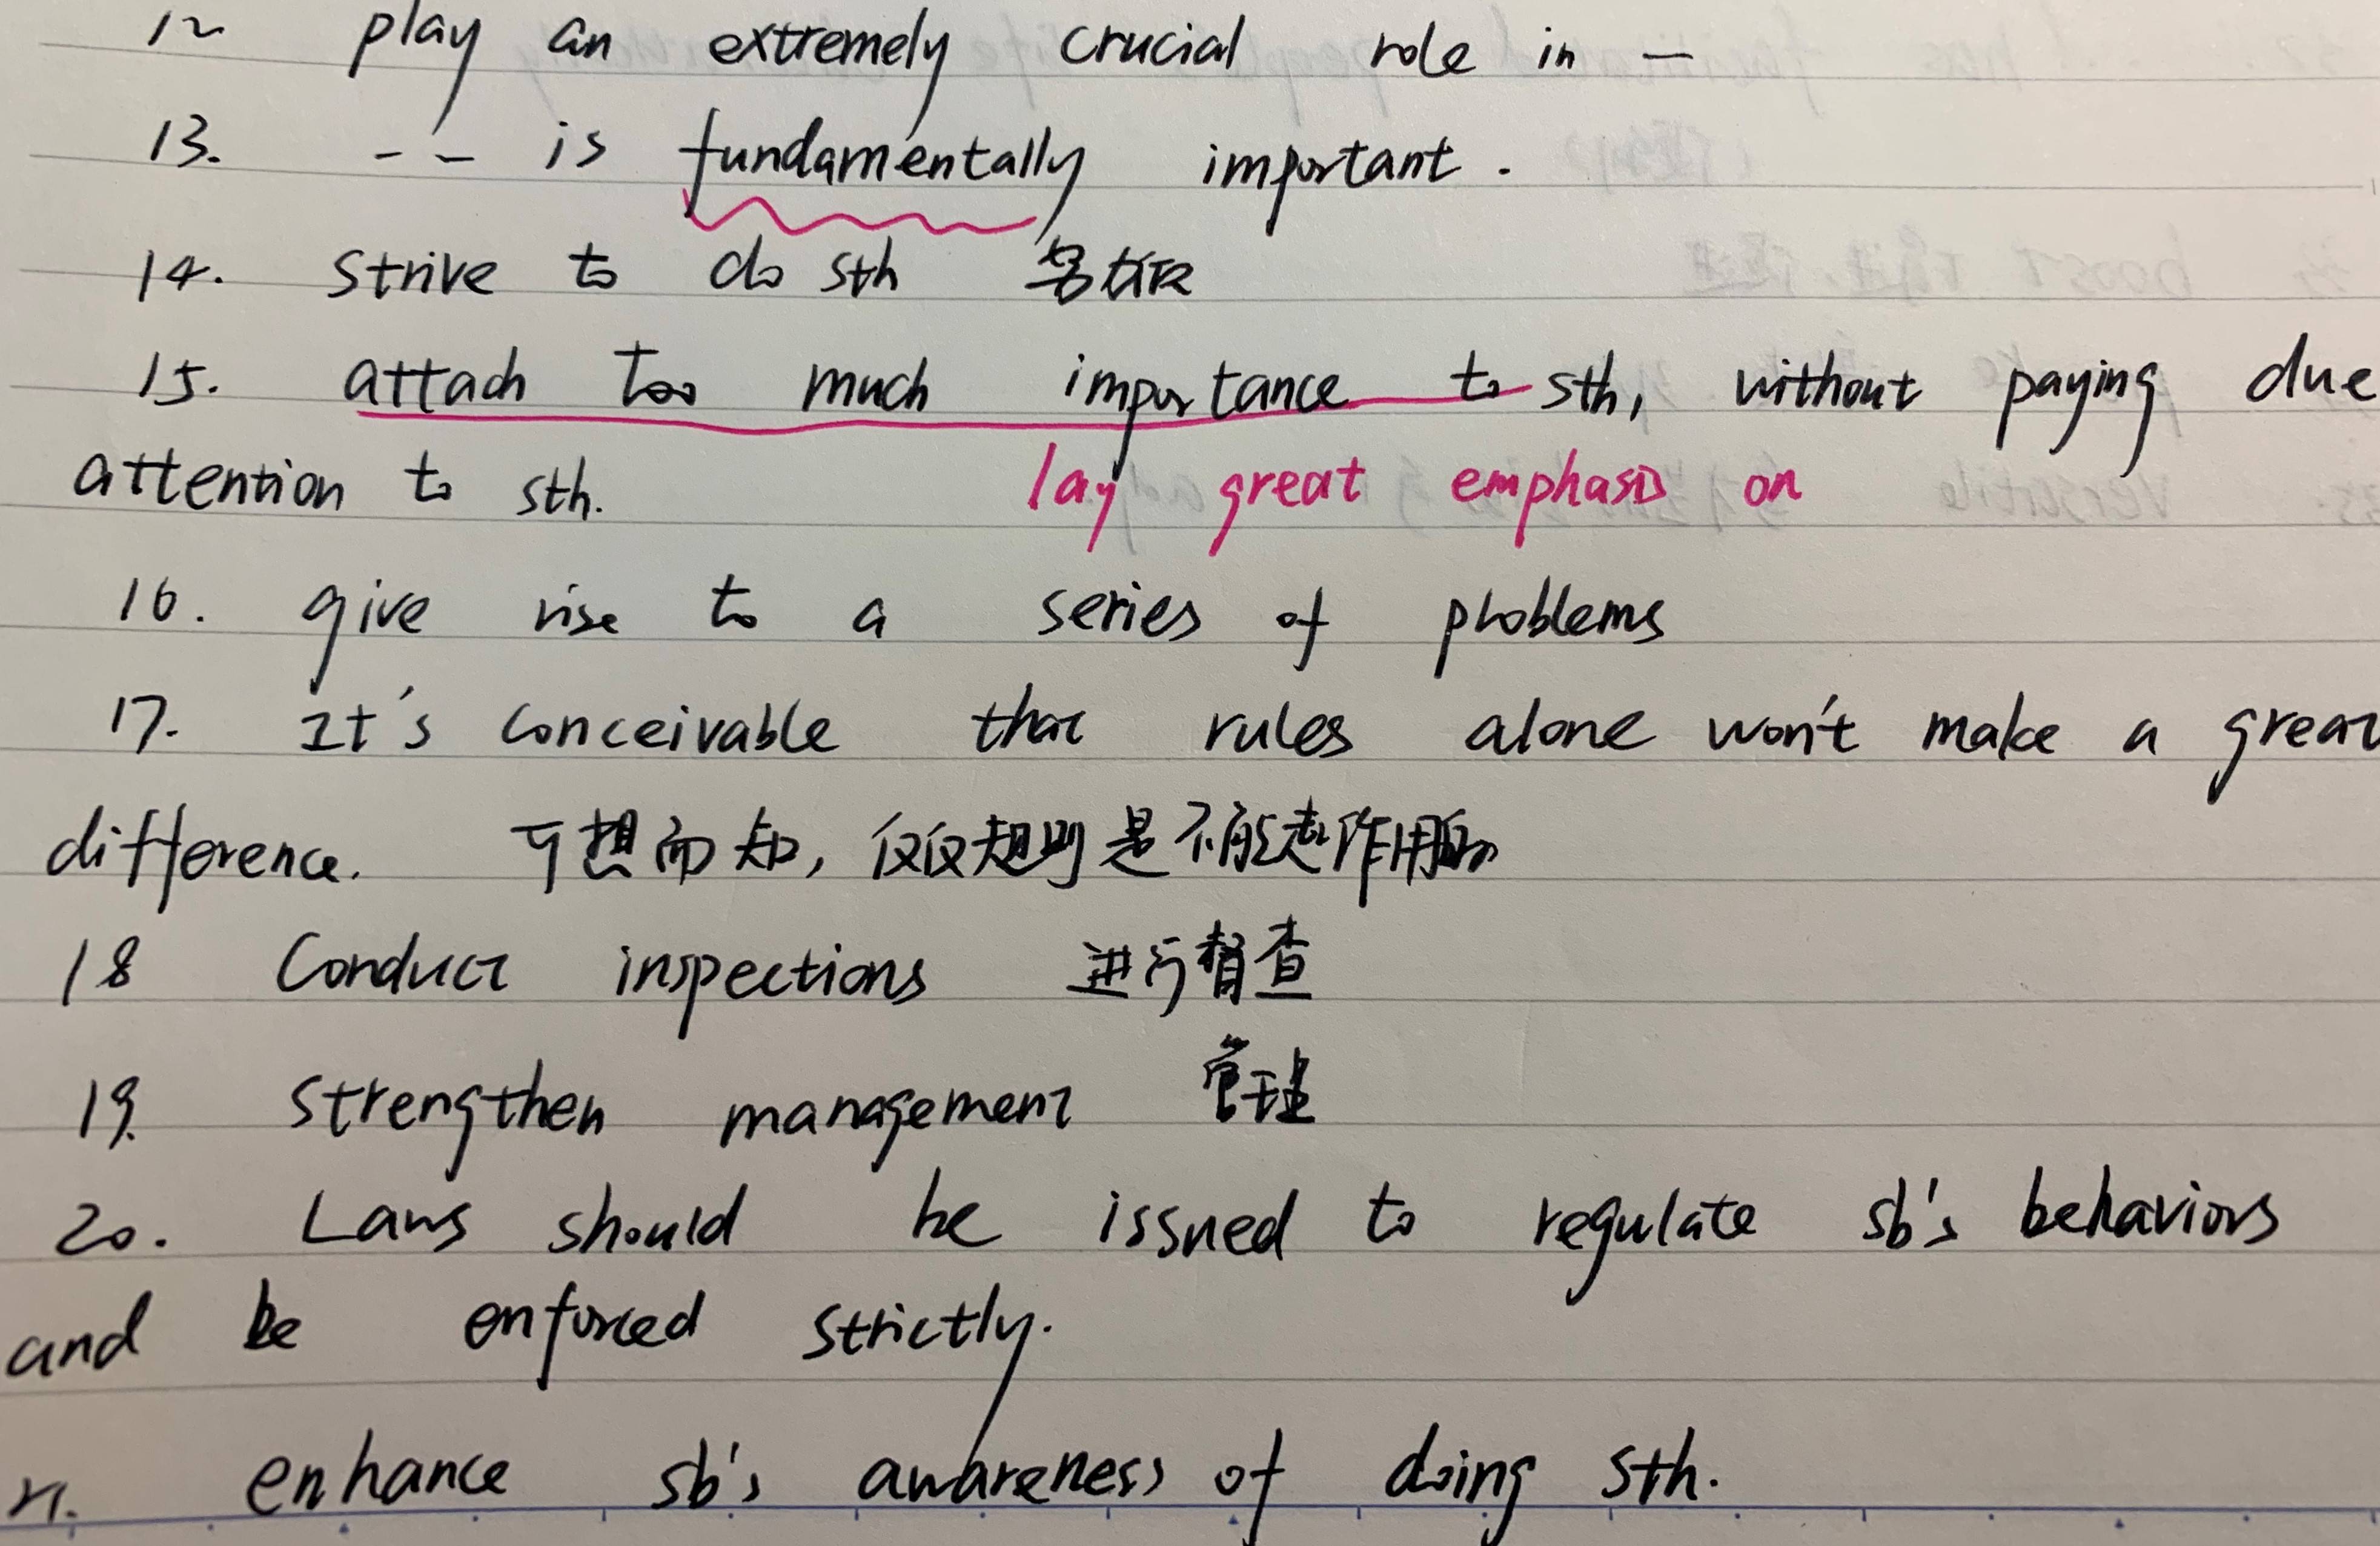 12 play an extremely crucial role in —
13. -- is fundamentally important.
14. strive to do sth
15. attach too much importance to sth, without paying due
attention to sth. lay great emphasis on
16. give rise to a series of problems
17. It's conceivable that rules alone won't make a great
difference. 可想而知, 仅仅规则是不能起作用的
18 Conduct inspections 进行督查
19. strengthen management 管理
20. Laws should be issued to regulate sb's behaviors
and be enforced strictly.
21. enhance sb's awareness of doing sth.